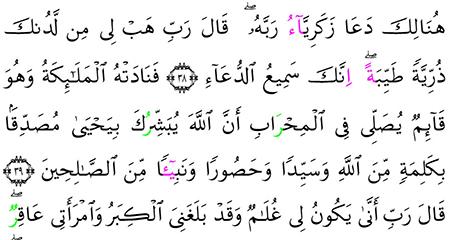 هُنَالِكَ دَعَا زَكَرِيَّآءُ رَبَّهُۥۖ قَالَ رَبِّ هَبْ لِى مِن لَّدُنكَ
ذُرِّيَّةٗ طَيِّبَةًۖ اِنَّكَ سَمِيعُ اُ۬لدُّعَآءِۖ ٣٨ فَنَادَتْهُ اُ۬لْمَلَٰٓئِكَةُ وَهُوَ
قَآئِمٞ يُصَلِّى فِى اِ۬لْمِحْرَابِ أَنَّ اَ۬للَّهَ يُبَشِّرُكَ بِيَحْيَىٰ مُصَدِّقَۢا
بِكَلِمَةٖ مِّنَ اَ۬للَّهِ وَسَيِّدٗا وَحَصُورٗا وَنَبِيٓـٔٗا مِّنَ اَ۬لصَّٰلِحِينَۖ ٣٩
قَالَ رَبِّ أَنَّىٰ يَكُونُ لِى غُلَٰمٞ وَقَدْ بَلَغَنِىَ اَ۬لْكِبَرُ وَامْرَأَتِى عَاقِرٞۖ